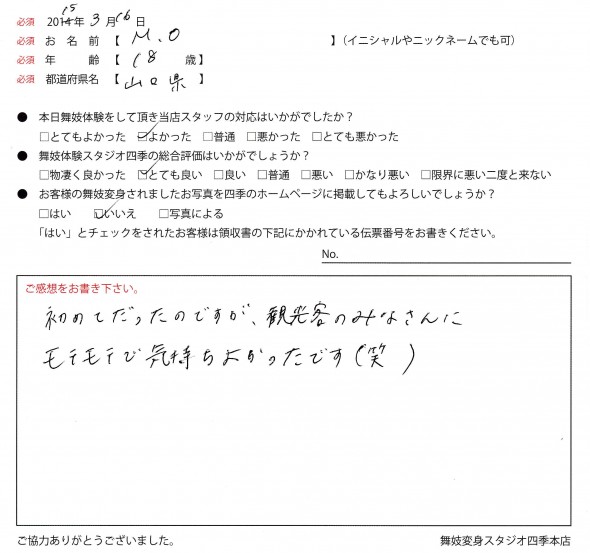 必須 2015年 3月16日
必須 お名前【 M.O 】（イニシャルやニックネームでも可）
必須 年齢【 18 歳】
必須 都道府県名【 山口県 】
● 本日舞妓体験をして頂き当店スタッフの対応はいかがでしたか？
□とてもよかった ☑よかった □普通 □悪かった □とても悪かった
● 舞妓体験スタジオ四季の総合評価はいかがでしょうか？
□物凄く良かった ☑とても良い □良い □普通 □悪い □かなり悪い □限界に悪い二度と来ない
● お客様の舞妓変身されましたお写真を四季のホームページに掲載してもよろしいでしょうか？
□はい ☑いいえ □写真による
「はい」とチェックをされたお客様は領収書の下記にかかれている伝票番号をお書きください。
No.
ご感想をお書き下さい。
初めてだったのですが、観光客のみなさんに
モテモテで気持ちよかったです（笑）
ご協力ありがとうございました。
舞妓変身スタジオ四季本店